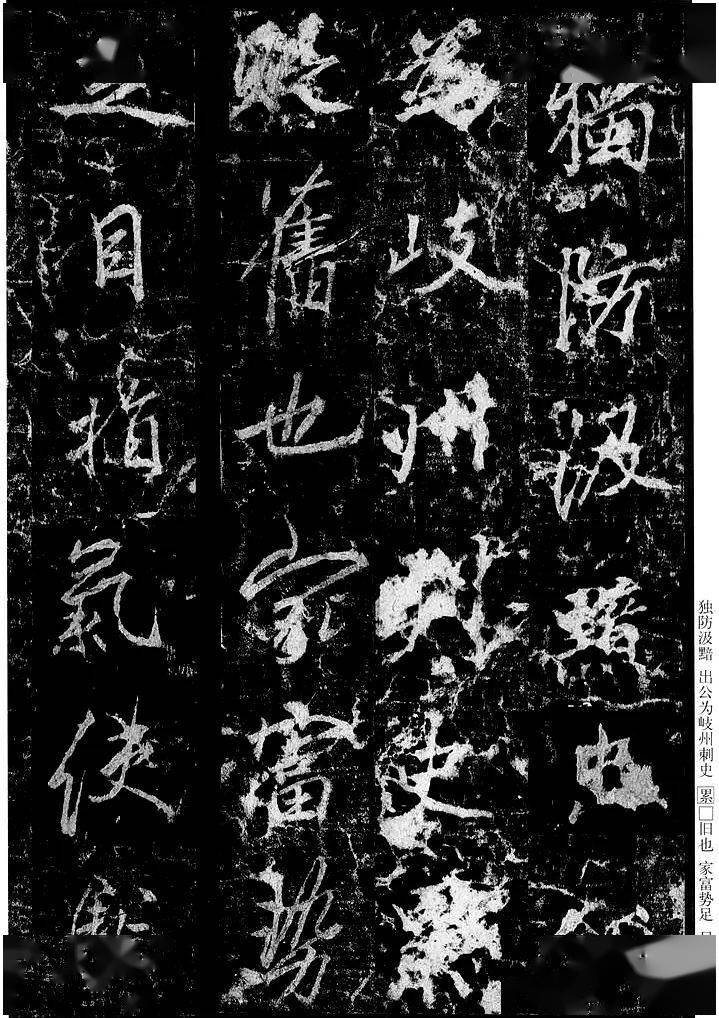 獨防汲黯出公
為岐州刺史累
舊也家富勢
足目指氣使
独防汲黯 出公为岐州刺史 累□旧也 家富势足